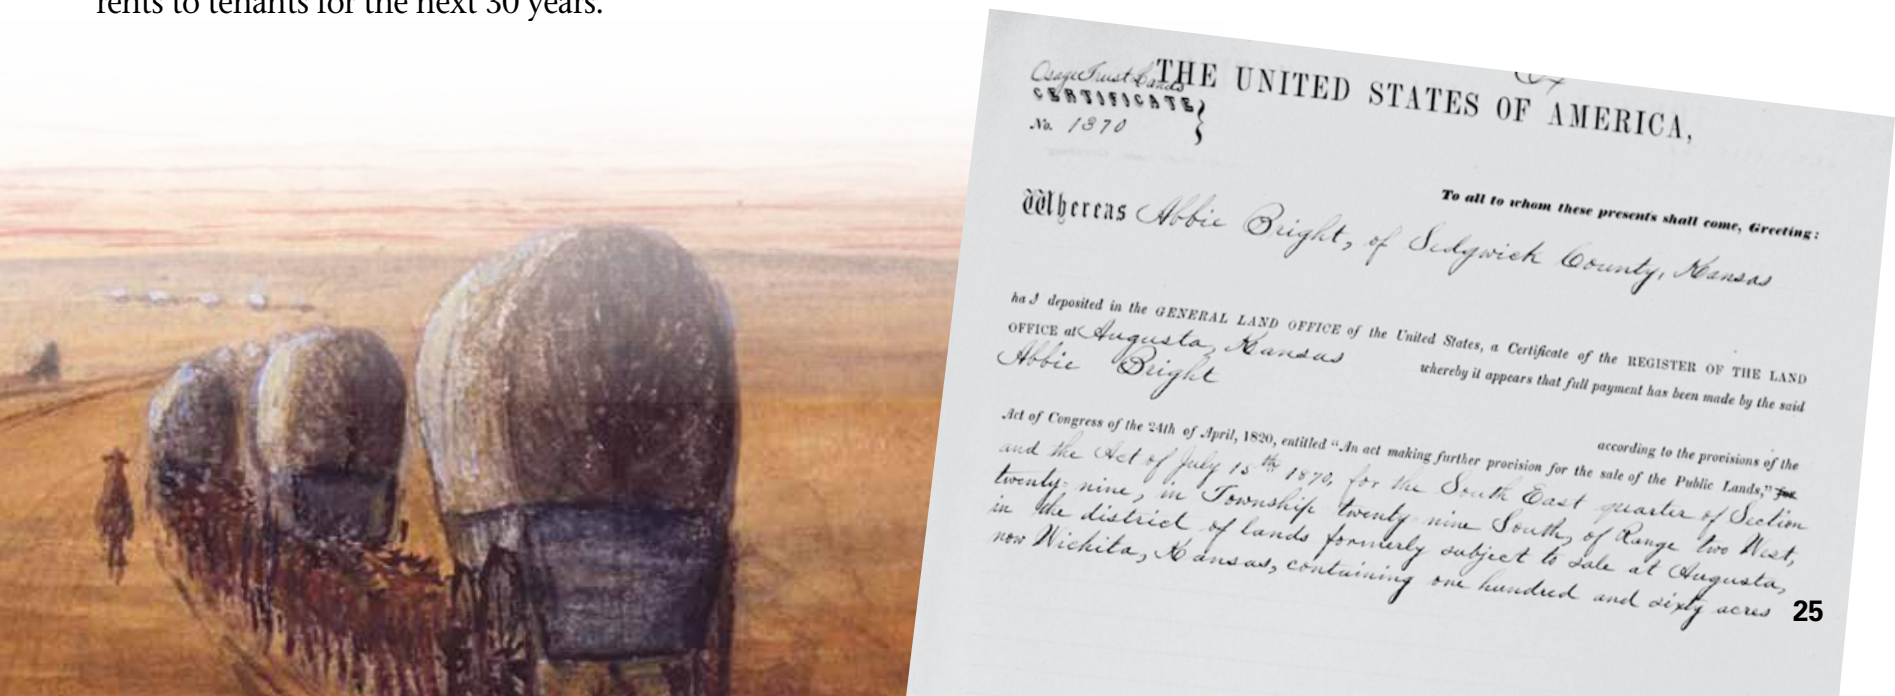 rents to tenants for the next 30 years.
Osage Trust Lands
THE UNITED STATES OF AMERICA,
CERTIFICATE
No. 1370
To all to whom these presents shall come, Greeting:
Whereas Abbie Bright, of Sedgwick County, Kansas
ha deposited in the GENERAL LAND OFFICE of the United States, a Certificate of the REGISTER OF THE LAND
OFFICE at Augusta, Kansas whereby it appears that full payment has been made by the said
Abbie Bright
according to the provisions of the
Act of Congress of the 24th of April, 1820, entitled “An act making further provision for the sale of the Public Lands,” for
and the Act of July 15th 1870, for the South East quarter of Section
twenty-nine, in Township twenty nine South, of Range two West,
in the district of lands formerly subject to sale at Augusta,
now Wichita, Kansas, containing one hundred and sixty acres
25